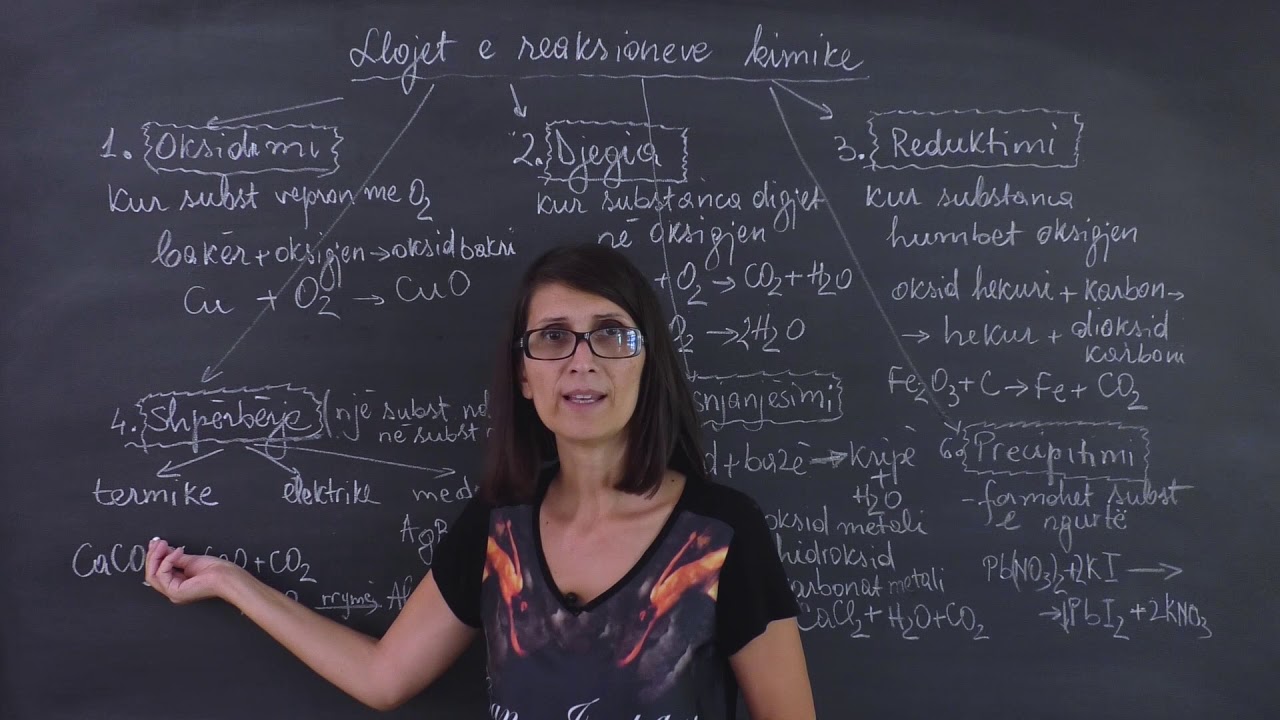 Llojet e reaksioneve kimike
1. Oksidimi
kur subst vepron me O₂
bakër + oksigjen → oksid bakri
Cu + O₂ → CuO
2. Djegia
kur substanca digjet
në oksigjen
+ O₂ → CO₂ + H₂O
→ 2H₂O
3. Reduktimi
kur substanca
humbet oksigjen
oksid hekuri + karbon →
→ hekur + dioksid
karboni
Fe₂O₃ + C → Fe + CO₂
4. Shpërbërje (një subst
në subst
termike elektrike
CaCO
+ CO₂
rrymë
+ bazë → kripë
+
H₂O
oksid metali
hidroksid
metali
CaCl₂ + H₂O + CO₂
6. Precipitimi
- formohet subst
e ngurtë
Pb(NO₃)₂ + 2KI →
→ PbI₂ + 2KNO₃